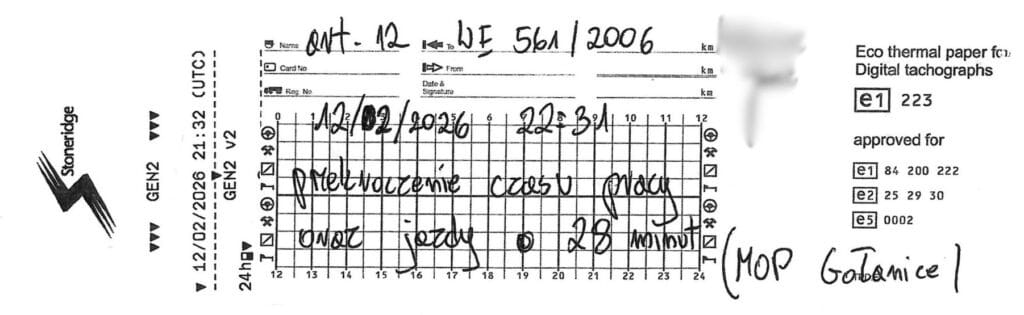 Stoneridge
▼▼▼ GEN2 ▼▼▼
▼ 12/02/2026 21:32 (UTC)
GEN2 v2
24h
Name art. 12 To WE 561/2006 km
Card No From km
Reg. No Date & Signature km
0 1 2 3 4 5 6 7 8 9 10 11 12
12/02/2026 22:31
przekroczenie czasu pracy
oraz jazdy o 28 minut
12 13 14 15 16 17 18 19 20 21 22 23 24
(MOP Gołanice)
Eco thermal paper for
Digital tachographs
e1 223
approved for
e1 84 200 222
e2 25 29 30
e5 0002